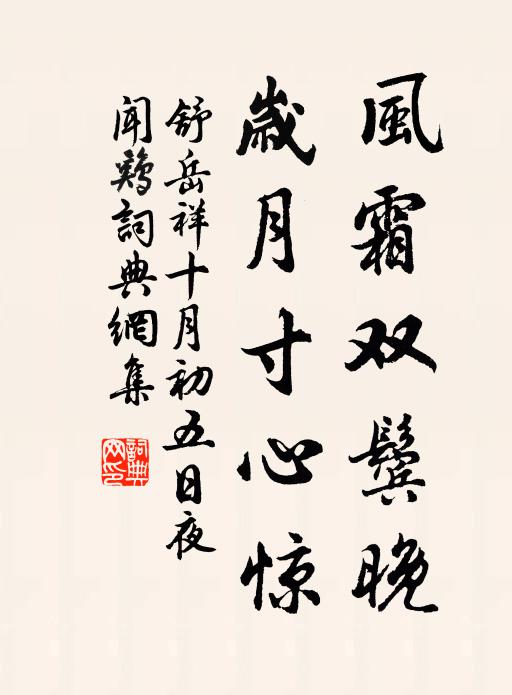 風霜双鬓晚
歲月寸心惊
舒岳祥十月初五日夜
闻鷄詞典網集
詞典
网印